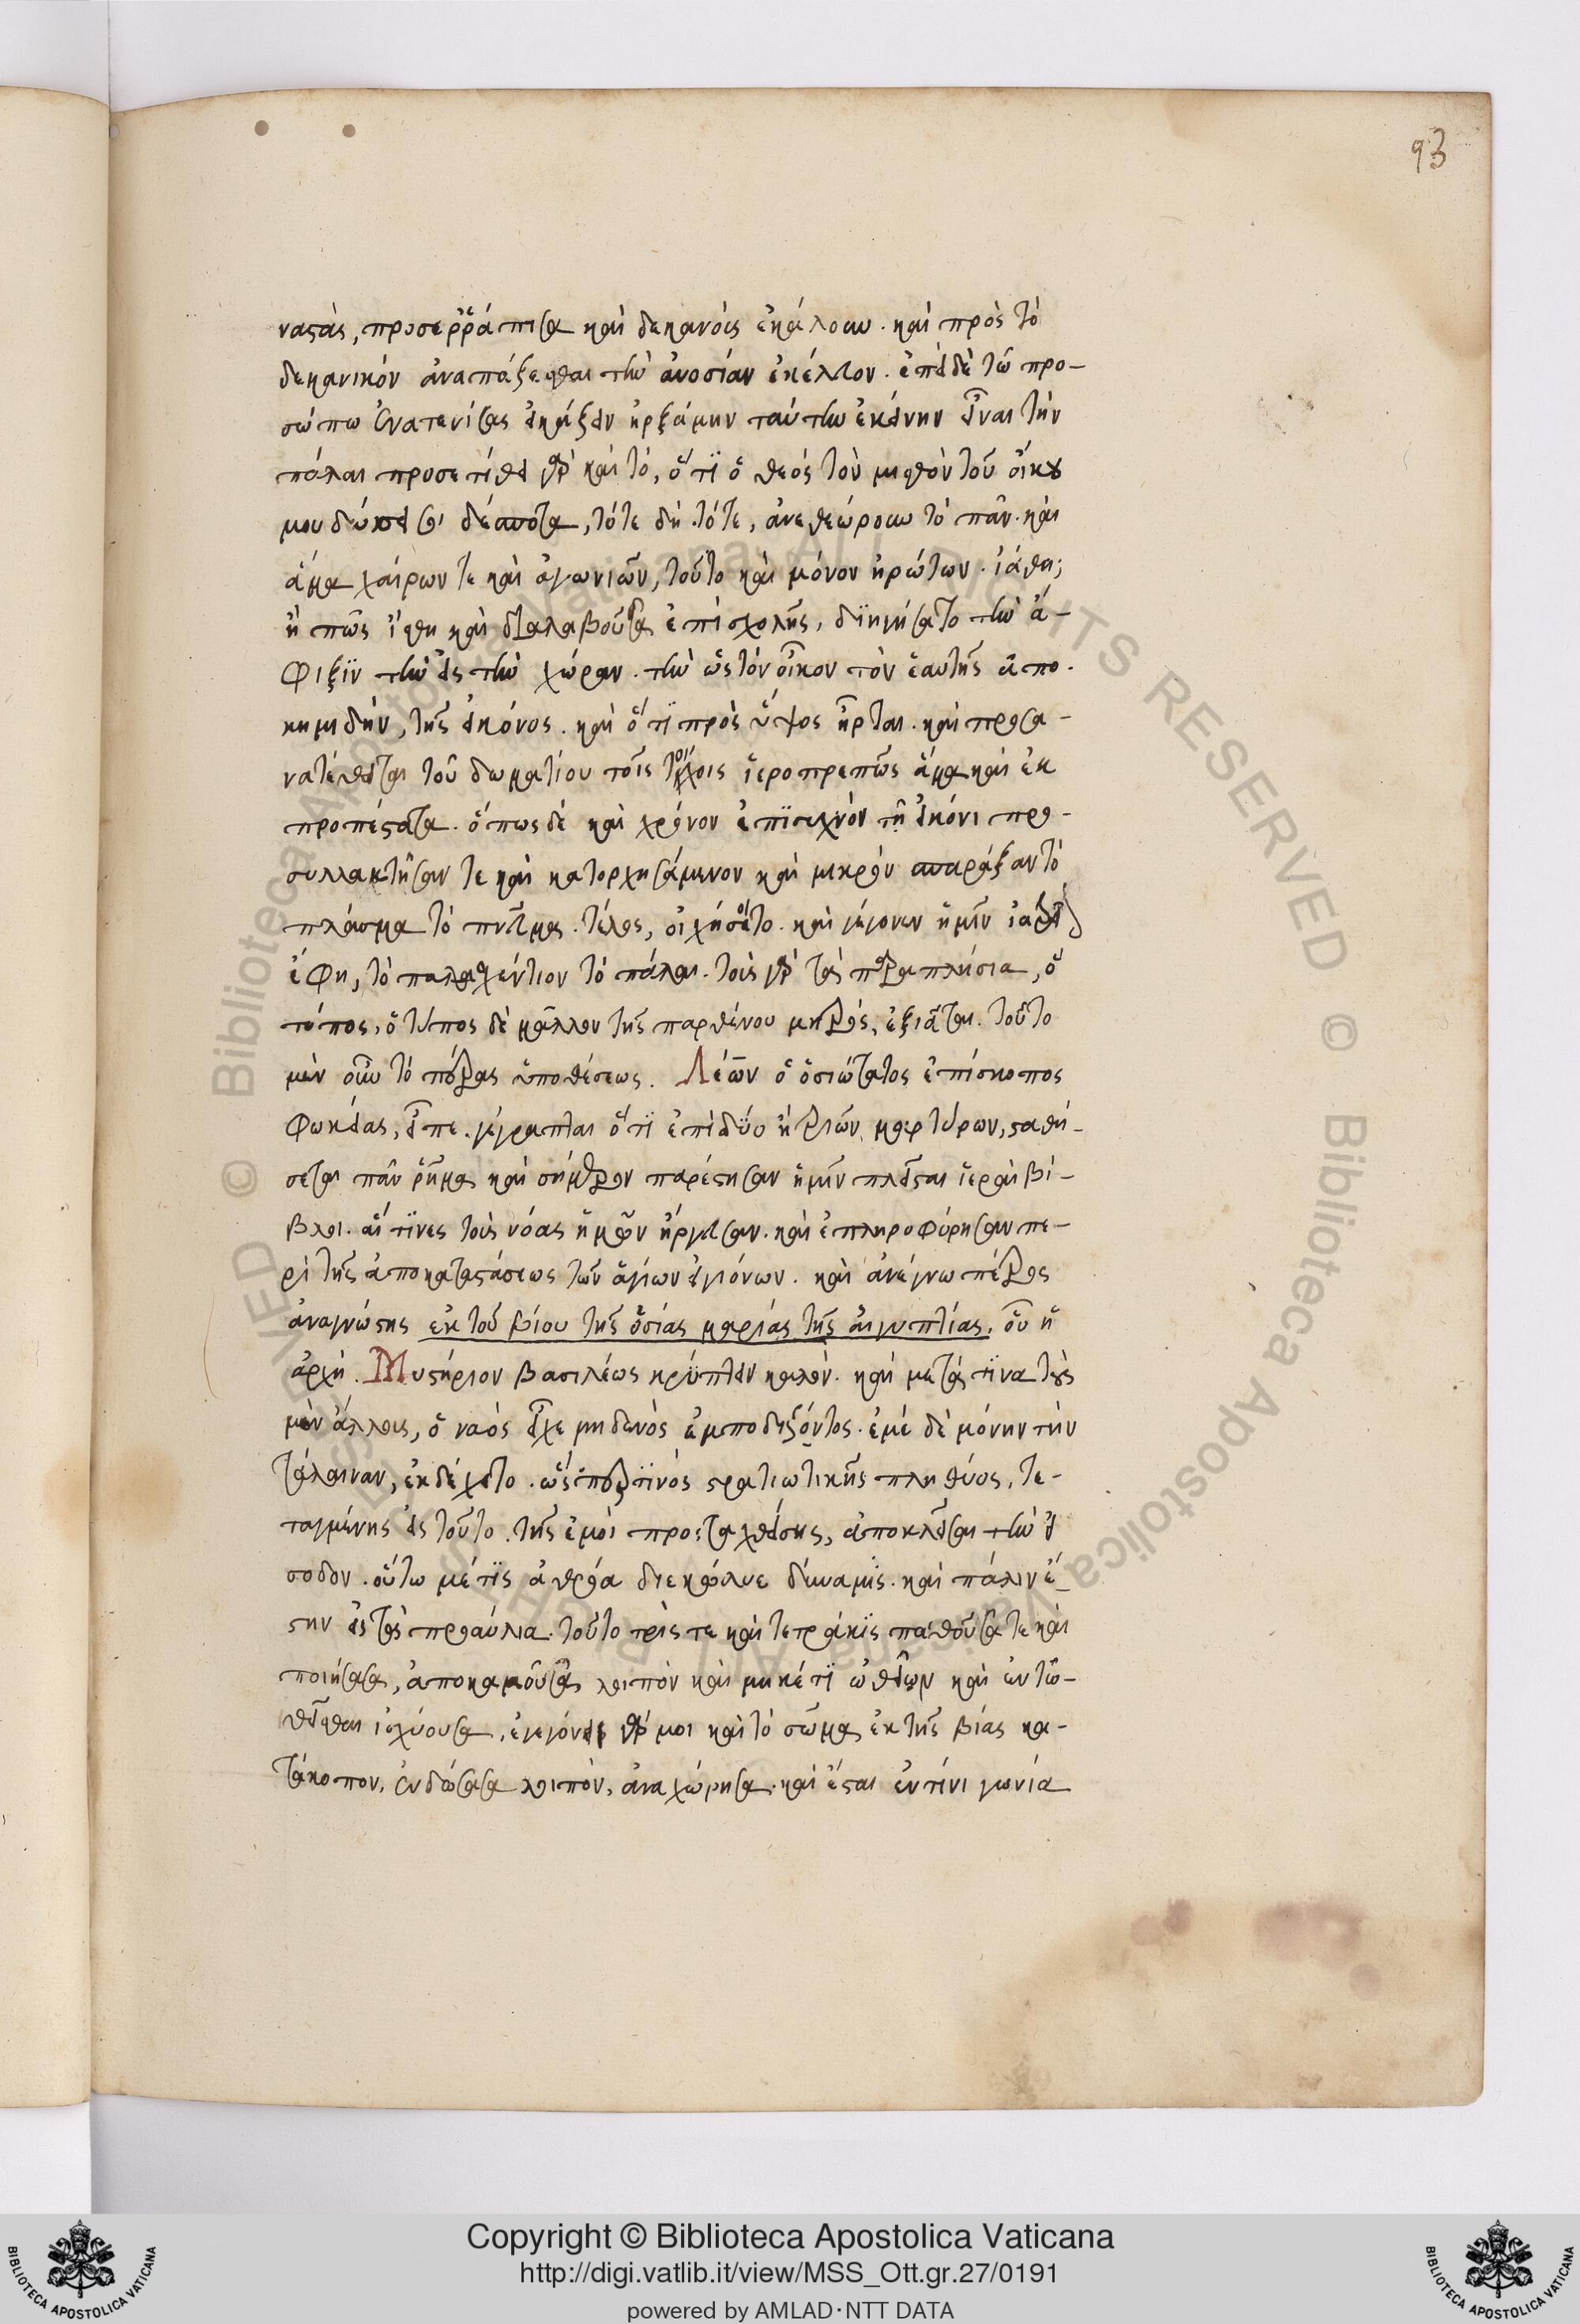 93
ναστὰς, προσερράπισα καὶ δεκανοὺς ἐκάλουν. καὶ πρὸς τὸ
δεκανικὸν ἀναπάξεσθαι τὴν ἀνοσίαν ἐκέλευον. ἐπεὶ δὲ τῶ προ-
σώπω ἐνατενίσας εἰκάζειν ἠρξάμην ταύτην ἐκείνην εἶναι τὴν
πάλαι προσετίθει γὰρ καὶ τὸ, ὅτι ὁ θεὸς τὸν μισθὸν τοῦ οἴκου
μου δώσει σοι δέσποτα, τότε δὴ τότε, ἀνεθεώρουν τὸ πᾶν. καὶ
ἅμα χαίρων τε καὶ ἀγωνιῶν, τοῦτο καὶ μόνον ἠρώτων. ἰάθη;
ἢ πῶς ἴσθη καὶ διαλαβοῦσα ἐπὶ σχολῆς, διηγήσατο τὴν ἄ-
φιξιν τὴν εἰς τὴν χώραν. τὴν ὡς τὸν οἶκον τὸν ἑαυτῆς ἀπο-
κημιδὴν, τῆς εἰκόνος. καὶ ὅτι πρὸς ὕψος ἦρται. καὶ προσα-
νατέθειται τοῦ δωματίου τοῖς τοίχοις ἱεροπρεπῶς ἅμα καὶ ἐκ
προπέσατα. ὅπως δὲ καὶ χρόνον ἐπισυχνὸν τῆ εἰκόνι προ-
συλλακτῆσαν τε καὶ κατορχησάμενον καὶ μικρὸν σπαράξαν τὸ
πλάσμα τὸ πνεῦμα. τέλος, οἰχήσατο. καὶ γέγονεν ἡμῖν
ἔφη, τὸ παλαχέντιον τὸ πάλαι. τοῖς γὰρ τὰ παραπλήσια, ὁ
τόπος, ὁ τύπος δὲ μᾶλλον τῆς παρθένου μητρὸς, ἐξιᾶται. τοῦτο
μὲν οὖν τὸ πέρας ὑποθέσεως. Λέων ὁ ὁσιώτατος ἐπίσκοπος
Φωκείας, εἶπε. γέγραπται ὅτι ἐπὶ δύο ἢ τριῶν μαρτύρων, σταθή-
σεται πᾶν ῥῆμα καὶ σήμερον παρέστησαν ἡμῖν πλεῖσται ἱεραὶ βί-
βλοι. αἵ τινες τοὺς νόας ἡμῶν ηὔγασαν. καὶ ἐπληροφόρησαν πε-
ρὶ τῆς ἀποκαταστάσεως τῶν ἁγίων εἰκόνων. καὶ ἀνέγνω πέτρος
ἀναγνώστης ἐκ τοῦ βίου τῆς ὁσίας μαρίας τῆς αἰγυπτίας, οὗ ἡ
ἀρχή. Μυστήριον βασιλέως κρύπτειν καλὸν. καὶ μετά τινα τοὺς
μὲν ἄλλους, ὁ ναὸς εἶχε μηδενὸς ἐμποδίζοντος. ἐμὲ δὲ μόνην τὴν
τάλαιναν, ἐκδέχετο. ὡς ὑπό τινὸς στρατιωτικῆς πληθύος, τε-
ταγμένης εἰς τοῦτο. τῆς ἐμοὶ προσταχθείσης, ἀποκλεῖσαι τὴν εἴ
σοδον. οὕτω μέ τις ἀθρόα διεκώλυε δύναμις. καὶ πάλιν ἔ-
στην εἰς τὰ προαύλια. τοῦτο τρὶς τε καὶ τετράκις παθοῦσα τε καὶ
ποιήσασα, ἀποκαμοῦσα λοιπὸν καὶ μηκέτι ὠθεῖν καὶ ἐντω-
θεῖσθαι ἰσχύουσα, ἐγεγόνει γάρ μοι καὶ τὸ σῶμα ἐκ τῆς βίας κα-
τάκοπον, ἐνδώσασα λοιπὸν, ἀναχώρησα. καὶ ἔσται ἐν τίνι γωνία
© Biblioteca Apostolica Vaticana ALL RIGHTS RESERVED
Copyright © Biblioteca Apostolica Vaticana
http://digi.vatlib.it/view/MSS_Ott.gr.27/0191
powered by AMLAD·NTT DATA
BIBLIOTECA APOSTOLICA VATICANA
BIBLIOTECA APOSTOLICA VATICANA